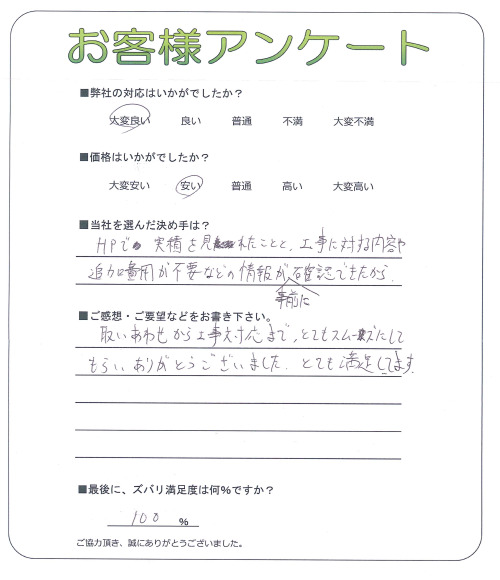 お客様アンケート
■弊社の対応はいかがでしたか？
大変良い 良い 普通 不満 大変不満
■価格はいかがでしたか？
大変安い 安い 普通 高い 大変高い
■当社を選んだ決め手は？
HPで 実積を見れたことと、工事に対する内容や
追加費用が不要などの情報が確認できたから。
事前に
■ご感想・ご要望などをお書き下さい。
取いあわせから工事対応まで、とてもスムーズにして
もらい、ありがとうございました。とても満足してます。
■最後に、ズバリ満足度は何%ですか？
100 %
ご協力頂き、誠にありがとうございました。